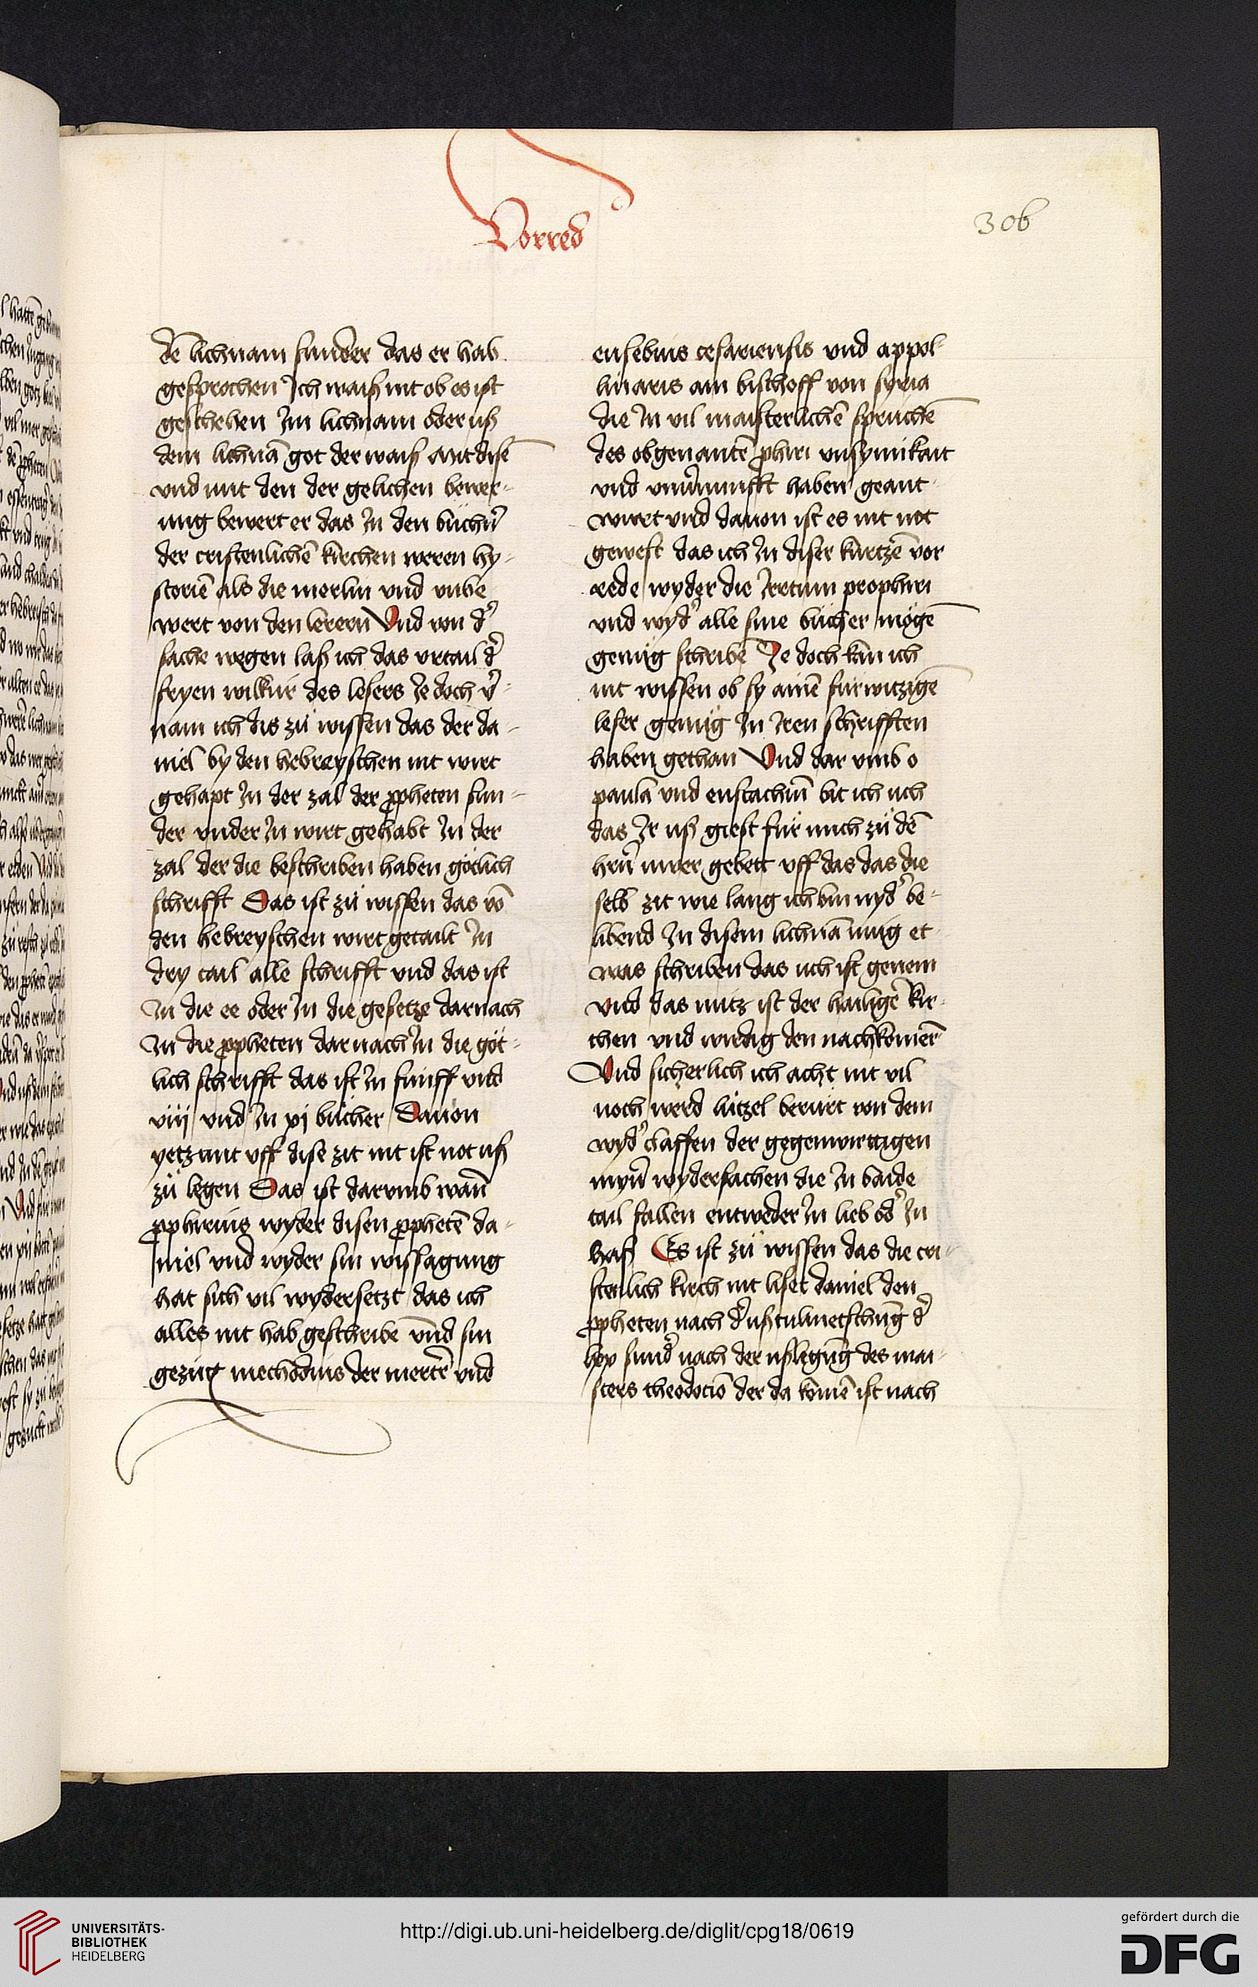 Vorred
306
dē lichnam sunder das er hab
gesprochen Ich waiß nit ob es ist
geschehen Im lichnam oder uß
dem lichnā got der waiß Mit disē
vnd mit den der gelichen bewer-
ung bewert er das In den büchn̄
der cristenlichē kirchen weren hy-
storiē als die merlin vnd vnbe
wert von den lerern Vnd von d'
sache wegen laß ich das vrtail d'
fryen wilkür des lesers Je doch v'-
nam ich dis zů wissen das der da-
niel by den hebreyschen nit wirt
gehapt In der zal der ppheten sun-
der vnder In wirt gehabt In der
zal der die beschriben haben götlich
schrifft Das ist zů wissen das vō
den hebreyschen wirt getailt In
dry tail alle schrifft vnd das ist
In die ee oder In die gesetze darnach
In die ppheten dar nach In die göt-
lich schrifft das ist In funff vnd
viij vnd In xj bücher Dauon
yetz mit vff dise zit nit ist not uß
zů legen Das ist darvmb wañ
pphirius wyder disen pphetē da-
niel vnd wyder sin wissagung
hat sich vil wydersetzt das ich
alles nit hab geschribē vnd sin
gezüg mechodius der mertrer vnd
eusebius cesariensis vnd appol-
linaris ain bischoff von syria
die In vil maisterlichē sprüchē
des obgenantē phiri vnsynnikait
vnd vnuernunfft haben geant
wurt vnd dauon ist es nit not
gewest das ich In diser kurtzē vor
rede wyder die Irretum prophiri
vnd wyd' alle sine bücher mögē
genüg schribē Je doch kan ich
nit wissen ob sy ainē fürwitzigē
leser genüg In Iren schrifften
haben gethan Vnd dar vmb o
paula vnd eustachiū bit ich uch
das Ir uß giest für mich zů dē
hrn̄ uwer gebett vff das das die
selb zit wie lang ich bin nyd' be-
libend In disem lichnā ünig et
was schriben das uch ist genem
vnd das nutz ist der hailigē kir-
chen vnd wirdig den nachkomēn
Vnd sicherlich ich acht nit vil
noch werd lützel berürt von dem
wyd' claffen der gegenwirttigen
myn̄ wydersachen die In baide
tail fallen entweder In lieb od' In
haß Es ist zů wissen das die cri-
stenlich kirch nit liset daniel den
ppheten nach d' ußtulmetschung d'
lxx sund' nach der ußlegūg des mai-
sters theodotiō der da komē ist nach
UNIVERSITÄTS-
BIBLIOTHEK
HEIDELBERG
http://digi.ub.uni-heidelberg.de/diglit/cpg18/0619
gefördert durch die
DFG